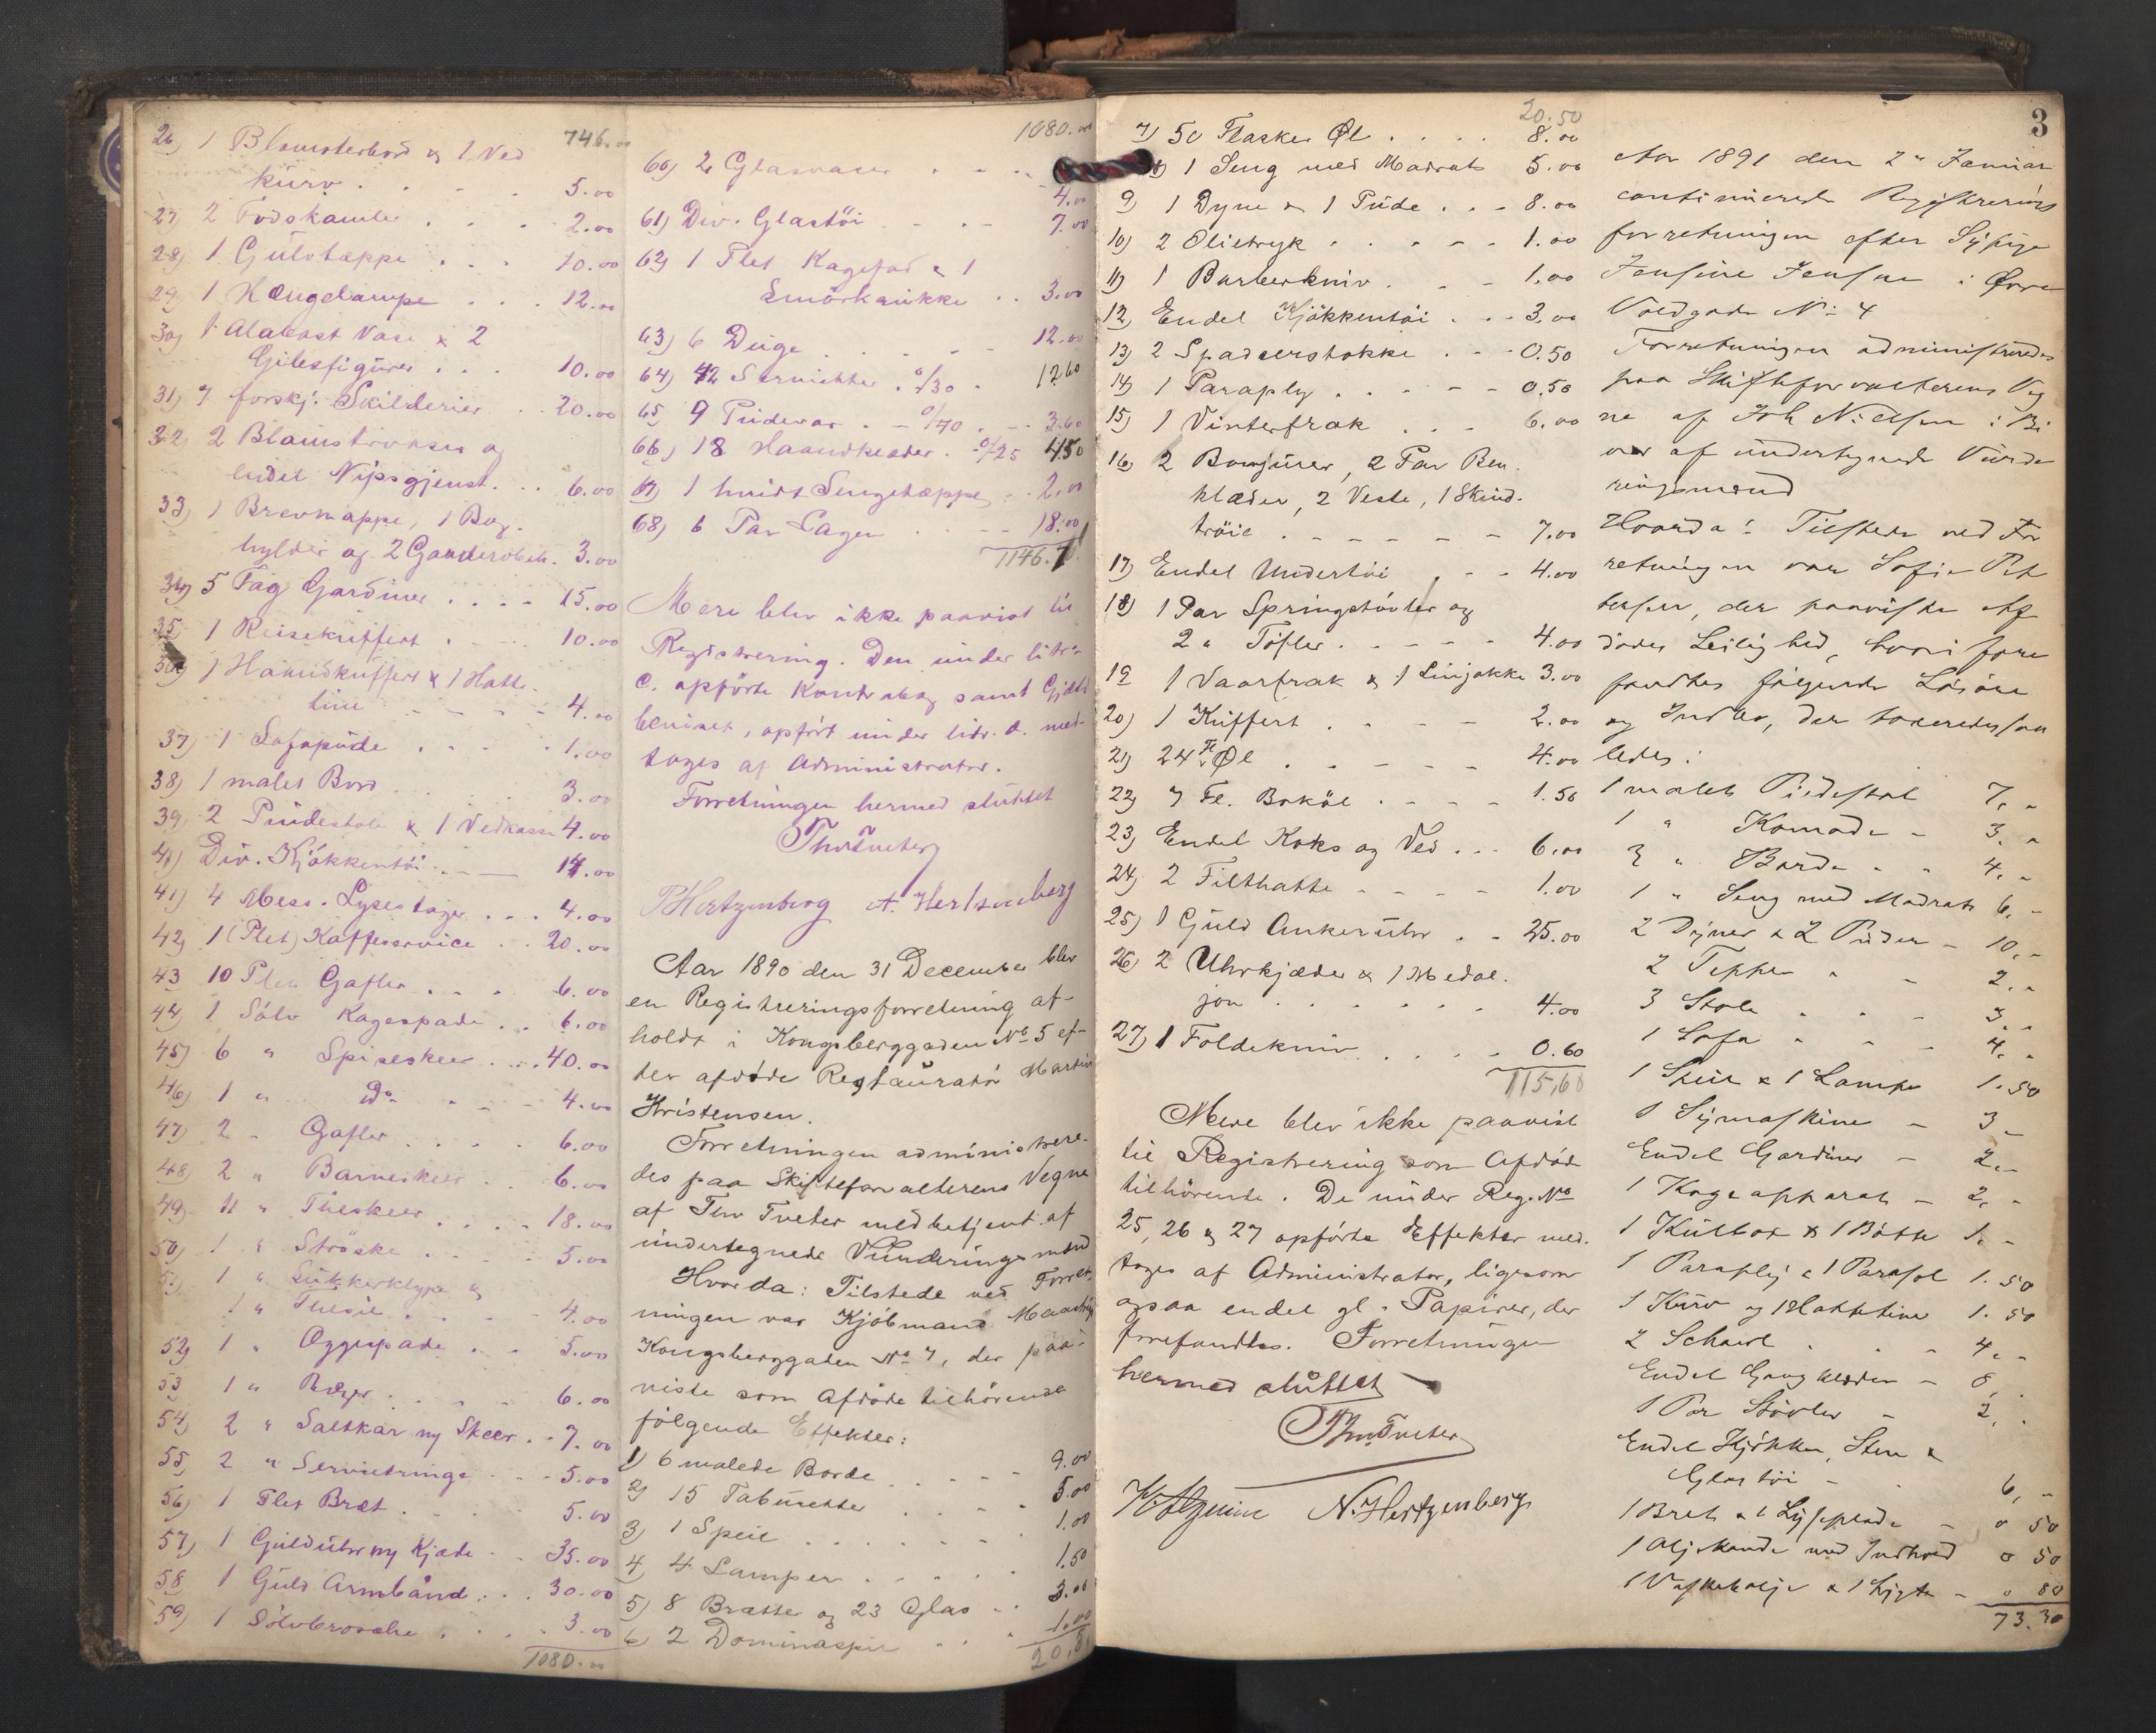 746.00
26) 1 Blomsterbord & 1 Ved
kurv . . . . 5.00
27) 2 Fodskamler . . . 2.00
28) 1 Gulvtæppe . . . 10.00
29) 1 Hængelampe . . . 12.00
30) 1 Alabast Vase & 2
Gibsfigurer . . . 10.00
31) 7 forskj. Skilderier . . 20.00
32) 2 Blomstvaser og
endel Nipsgjenst. . . 6.00
33) 1 Brevmappe, 1 Bog-
hylder og 2 Garderobeh. 3.00
34) 5 Fag Gardiner . . . . 15.00
35 1 Reisekuffert . . . 10.00
36) 1 Haandkuffert & 1 Hatte
tine . . . . 4.00
37) 1 Sofapude . . . . 1.00
38) 1 malet Bord . . . 3.00
39) 2 Pindestole & 1 Vedkasse 4.00
40) Div. Kjøkkentöi . . . 14.00
41) 4 Mess. Lysestager . . . 4.00
42) 1 (Plet) Kaffeservice . . 20.00
43 10 Plet Gafler . . . 6.00
44) 1 Sølv Kagespade . . 6.00
45) 6 " Spiseskeer . . . 40.00
46) 1 " Do . . . 4.00
47) 2 " Gafler . . . . 6.00
48) 2 " Barneskeer . . 6.00
49) 11 " Theskeer . . . . 18.00
50) 1 " Ströske . . . . 5.00
51) 1 " Sukkerklype &
1 " Thesil . . . . 4.00
52) 1 " Æggespade . . . 5.00
53 1 " Bæger . . . . 6.00
54) 2 " Saltkar m/ Skeer . . 7.00
55) 2 " Servietringe . . . 5.00
56) 1 Plet Bræt . . . . 5.00
57) 1 Gulduhr m/ Kjæde . . 35.00
58 1 Guld Armbånd . . . 30.00
59) 1 Sölvbrosche . . . . 3.00
1080.00
1080.00
60) 2 Glasvaser . . . 4.00
61) Div. Glastöi . . . . 7.00
62) 1 Plet Kagefad & 1
Smörkrukke . . 3.00
63) 6 Duge . . . . . 12.00
64) 42 Servietter . a/30 . 12 60
65 9 Pudevar . - a/40 . - 3.60
66) 18 Haandklæder . a/25 4.50
67) 1 hvidt Sengetæppe . . 2.00
68) 6 Par Lagen . . . 18.00
1146.70
Mere blev ikke paavist til
Registrering. Den under litr.
C. opførte Kontrabog samt Gjælds
beviset, opfört under litr. d. med-
tages af Administrator.
Forretningen hermed sluttet
Thv Tveter
P Hertzenberg A. Hertzenberg
Aar 1890 den 31 December blev
en Registreringsforretning af-
holdt i Kongsberggaden No 5 ef-
ter afdöde Restauratör Martin
Kristensen.
Forretningen administrere-
des paa Skifteforvalterens Vegne
af Thv Tveter med betjent af
undertegnede Vurderingsmænd
Hvorda: Tilstede ved Forret-
ningen var Kjöbmand
Kongsberggaden No 7, der paa-
viste som Afdöde tilhörende
følgende Effekter:
1) 6 malede Borde . . . . 9.00
2) 15 Taburetter . . . . 5.00
3) 1 Speil . . . . . . 1.00
4) 4 Lamper . . . . . 1.50
5) 8 Brætte og 23 Glas . . 3.00
6) 2 Dominospil . . . 1.00
20,50
20.50
7) 50 Flasker Øl . . . . 8.00
8) 1 Seng med Madrats 5.00
9) 1 Dyne & 1 Pude . . . 8.00
10) 2 Olietryk . . . . . 1.00
11) 1 Barberkniv . . . 1.00
12) Endel Kjökkentöi . . . 3.00
13) 2 Spadserstokke . . . 0.50
14) 1 Paraply . . . . . 0.50
15) 1 Vinterfrak . . . 6.00
16) 2 Bonjurer, 2 Par Ben-
klæder, 2 Veste, 1 Skind-
tröie . . . . . . 7.00
17) Endel Undertöi . . . 4.00
18) 1 Par Springstövler og
2 " Tøfler . . . . . 4.00
19 1 Vaarfrak & 1 Linjakke 3.00
20) 1 Kuffert . . . . 2.00
21) 24 Fl Øl . . . . . 4.00
22) 7 Fl. Boköl . . . . 1.50
23) Endel Koks og Ved . . . 6.00
24) 2 Filthatte . . . . 1.00
25) 1 Guld Ankeruhr . . 25.00
26) 2 Uhrkjæder & 1 Medal-
jon . . . . . . 4.00
27) 1 Foldekniv . . . . 0.60
115,60
Mere blev ikke paavist
til Registrering som Afdöde
tilhörende. De under Reg. No
25, 26 & 27 opførte Effekter med-
tages af Administrator, ligesom
ogsaa endel gl. Papirer, der
forefandtes. Forretningen
hermed sluttet
Thv Tveter
N. Hertzenberg
3
Aar 1891 den 2den Januar
continueredes Registrerings
forretningen efter Sypige
Jensine Jensen i Øvre
Voldgade No 4
Forretningen administreredes
paa Skifteforvalterens Veg
ne af Joh Nielsen i Bi
vær af undertegnede Vurde
ringsmænd
Hvorda: Tilstede ved For
retningen var Sofie Pet
tersen, der paaviste Af
dödes Leilighed, hvori fore
fandtes følgende Løsøre
og Indbo, der taxeredes saa
ledes:
1 malet Pidestal 7, "
1 " Komode - 3, "
3 " Borde - " 4, "
1 " Seng med Madrats 6, -
2 Dyner & 2 Puder - 10, -
2 Tepper " - 2, "
3 Stole . . - 3, "
1 Sofa " - - 4, "
1 Speil & 1 Lampe 1. 50
1 Symaskine - 3 -
Endel Gardiner - 2, -
1 Kogeapparat - 2, -
1 Kulbox & 1 Bøtte 1. -
1 Paraply & 1 Parasol 1. 50
1 Kurv og 1 Hattetine 1. 50
2 Schawl . . - 4, -
Endel Gangklæder - 8, .
1 Par Støvler - 2, .
Endel Kjøkken, Sten &
Glastöi - . 6, -
1 Bret & 1 Lyseplade - 0 50
1 Oljekande med Indhold 0 50
1 Vaskebalje & 1 Lygte - 0 80
73.30